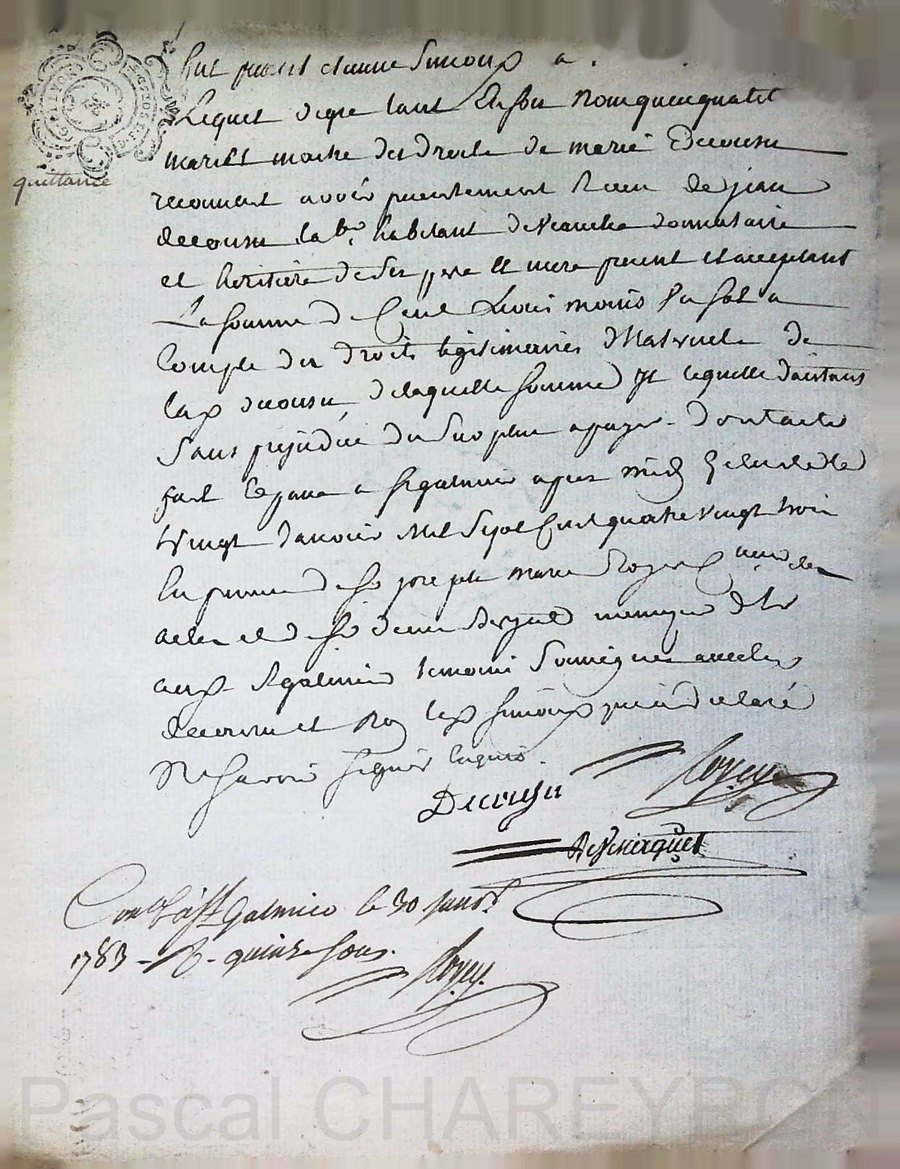 quittance
fut present etienne Simoux a
Lequel degre tant en son nom que en qualité
maris et maitre des droits de marie Decousu
reconnait avoir presentement Receu de jean
decousu lab.r habitant de Veauche donnataire
et heritiere de ses pere et mere present et acceptant
La somme de Cent Livres moins Un sol a
Compte des droits legitimaires Maternels de
lad decousu, de laquelle somme il lequelle
Sans prejudice du Surplus a payer. dont acte
fait et passé a St galmier apres midy
vingt Janvier Mil Sept Cent quatre vingt trois
En presence de Sr joseph marie Royer
et de Sr denis menuisier
aux St galmier temoins Soussignés avec led
decousu et Non led Simoux qui a declaré
Ne Scavoir Signer Enquis.
Decousu Royer
Cont.lé à St Galmier le 30 Janv.r
1783 - R - quinze sous.
Royer
Pascal CHAREYRON